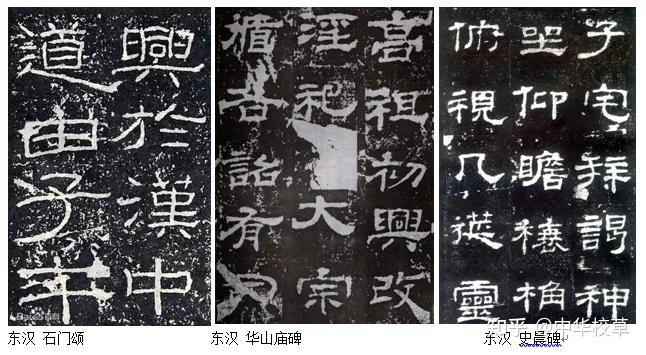 興於漢中
道由子午
Baidu百科
高祖初興改
淫祀大宗
循各詔有司
子宅拜謁神
坐仰瞻榱桷
俯視几筵靈
知乎 @中华校草
东汉 石门颂
东汉 华山庙碑
东汉 史晨碑